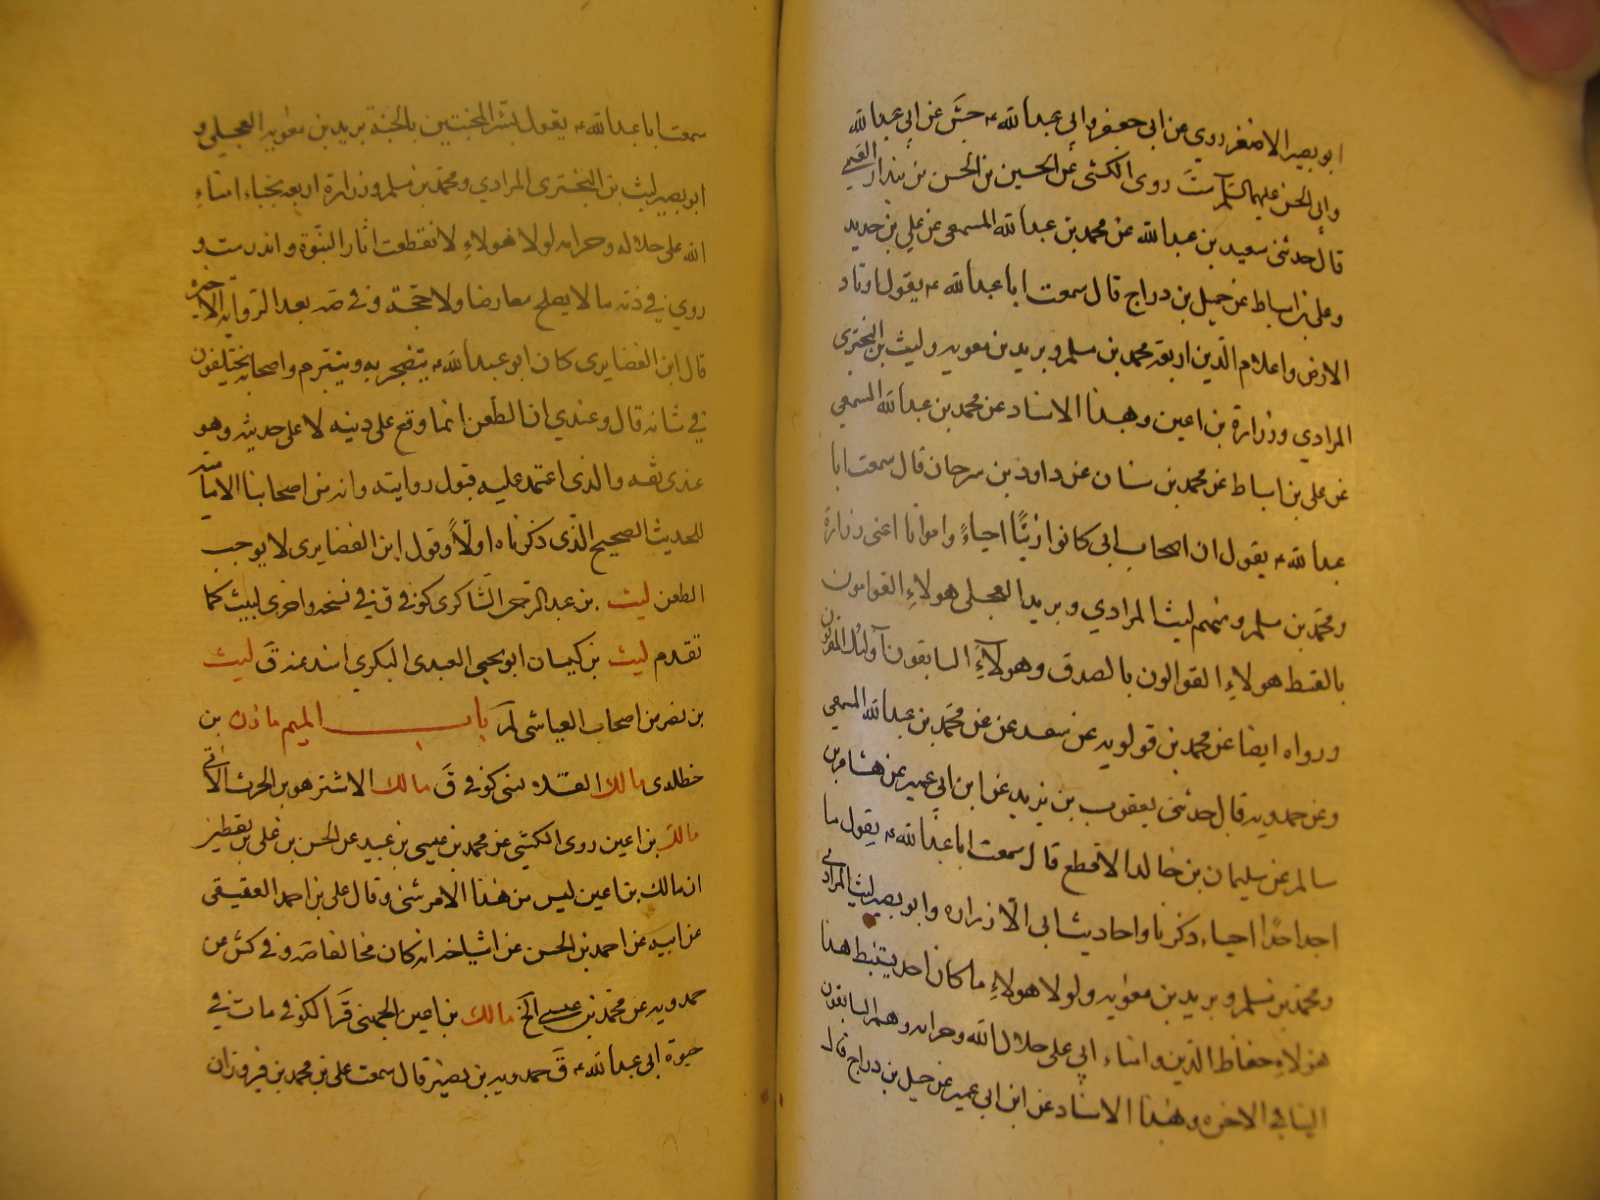 ابو بصير الاصغر روي عن ابي جعفر وابي عبد الله ع جش عن ابي عبد الله
وابي الحسن عليهما السلم ست روى الكشي عن الحسين بن الحسن بن بندار القمي
قال حدثني سعيد بن عبد الله عن محمد بن عبد الله المسمعي عن علي بن حديد
وعلي بن اسباط عن جميل بن دراج قال سمعت ابا عبد الله ع يقول اوتاد
الارض واعلام الدين اربعة محمد بن مسلم وبريد بن معويه وليث بن البختري
المرادي وزرارة بن اعين وبهذا الاسناد عن محمد بن عبد الله المسمعي
عن علي بن اسباط عن محمد بن سنان عن داود بن سرحان قال سمعت ابا
عبد الله ع يقول ان اصحاب ابي كانوا زينا احياءً وامواتا اعني زرارة
ومحمد بن مسلم ومنهم ليث المرادي وبريد العجلي هولاءِ القوامون
بالقسط هولاءِ القوالون بالصدق وهولآءِ السابقون آولئك المقربون
ورواه ايضا عن محمد بن قولويه عن سعد عن محمد بن عبد الله المسمعي
وعن حمدويه قال حدثني يعقوب بن يزيد عن ابن ابي عمير عن هشام بن
سالم عن سليمان بن خالد الاقطع قال سمعت ابا عبد الله ع يقول ما
اجد احدًا احياء ذكرنا واحاديث ابي الا زراره وابو بصير ليث المرادي
ومحمد بن مسلم وبريد بن معويه ولولا هولاءِ ما كان احد يستنبط هذا
هولاءِ حفاظ الدين وامناء ابي على حلال الله وحرامه وهم السابقون
الينا في الاخره وبهذا الاسناد عن ابن ابي عمير عن جميل بن دراج قال
سمعت ابا عبد الله ع يقول بشر المخبتين بالجنة بريد بن معويه العجلي و
ابو بصير ليث بن البختري المرادي ومحمد بن مسلم وزرارة اربعه نجباء امناء
الله على حلاله وحرامه لولا هولاءِ لانقطعت اثار النبوة واندرست و
روي في ذمه ما لا يصلح معارضا ولا حجة وفي صه بعد الرواية الاخيره
قال ابن الغضايري كان ابو عبد الله ع يتضجر به ويتبرم واصحابه يختلفون
في شانه قال وعندي ان الطعن انما وقع على دينه لا على حديثه وهو
عندي ثقه والذي اعتمد عليه قبول روايته وانه من اصحابنا الامامية
للحديث الصحيح الذي ذكرناه اولاً وقول ابن الغضايري لا يوجب
الطعن ليث بن عبد الرحمن الشاكري كوفي ق في نسخه واخرى لبيث كما
تقدم ليث بن كيسان ابو يحيى العبدي البكري اسند عنه ق ليث
بن نصر من اصحاب العياشي لم باب الميم مازن بن
حنظله ى مالك العقدلا نسي كوفي ق مالك الاشتر هو بن الحرث الاتي
مالك بن اعين روى الكشي عن محمد بن عيسى بن عبيد عن الحسن بن علي بن يقطين
ان مالك بن اعين ليس من هذا الامر شئ وقال علي بن احمد العقيقي
عن ابيه عن احمد بن الحسن عن اشياخه انه كان مخالفا صه وفي كش عن
حمدويه عن محمد بن عيسى الخ مالك بن اعين الجهني قر الكوفي مات في
حيوة ابي عبد الله ع ق حمدويه بن نصير قال سمعت علي بن محمد بن فيروزان